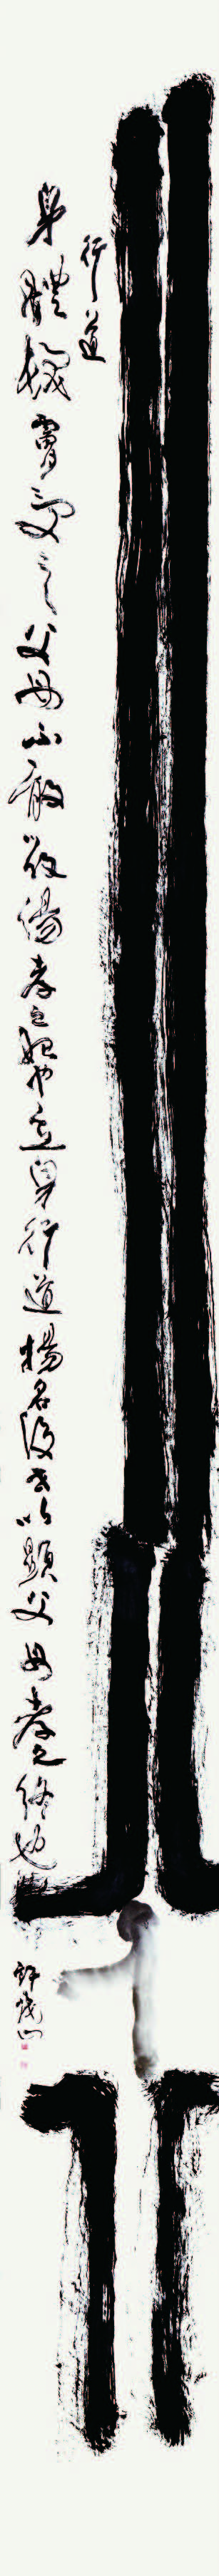 行道
身體髮膚受之父母不敢毀傷孝之始也立身行道揚名後世以顯父母孝之終也